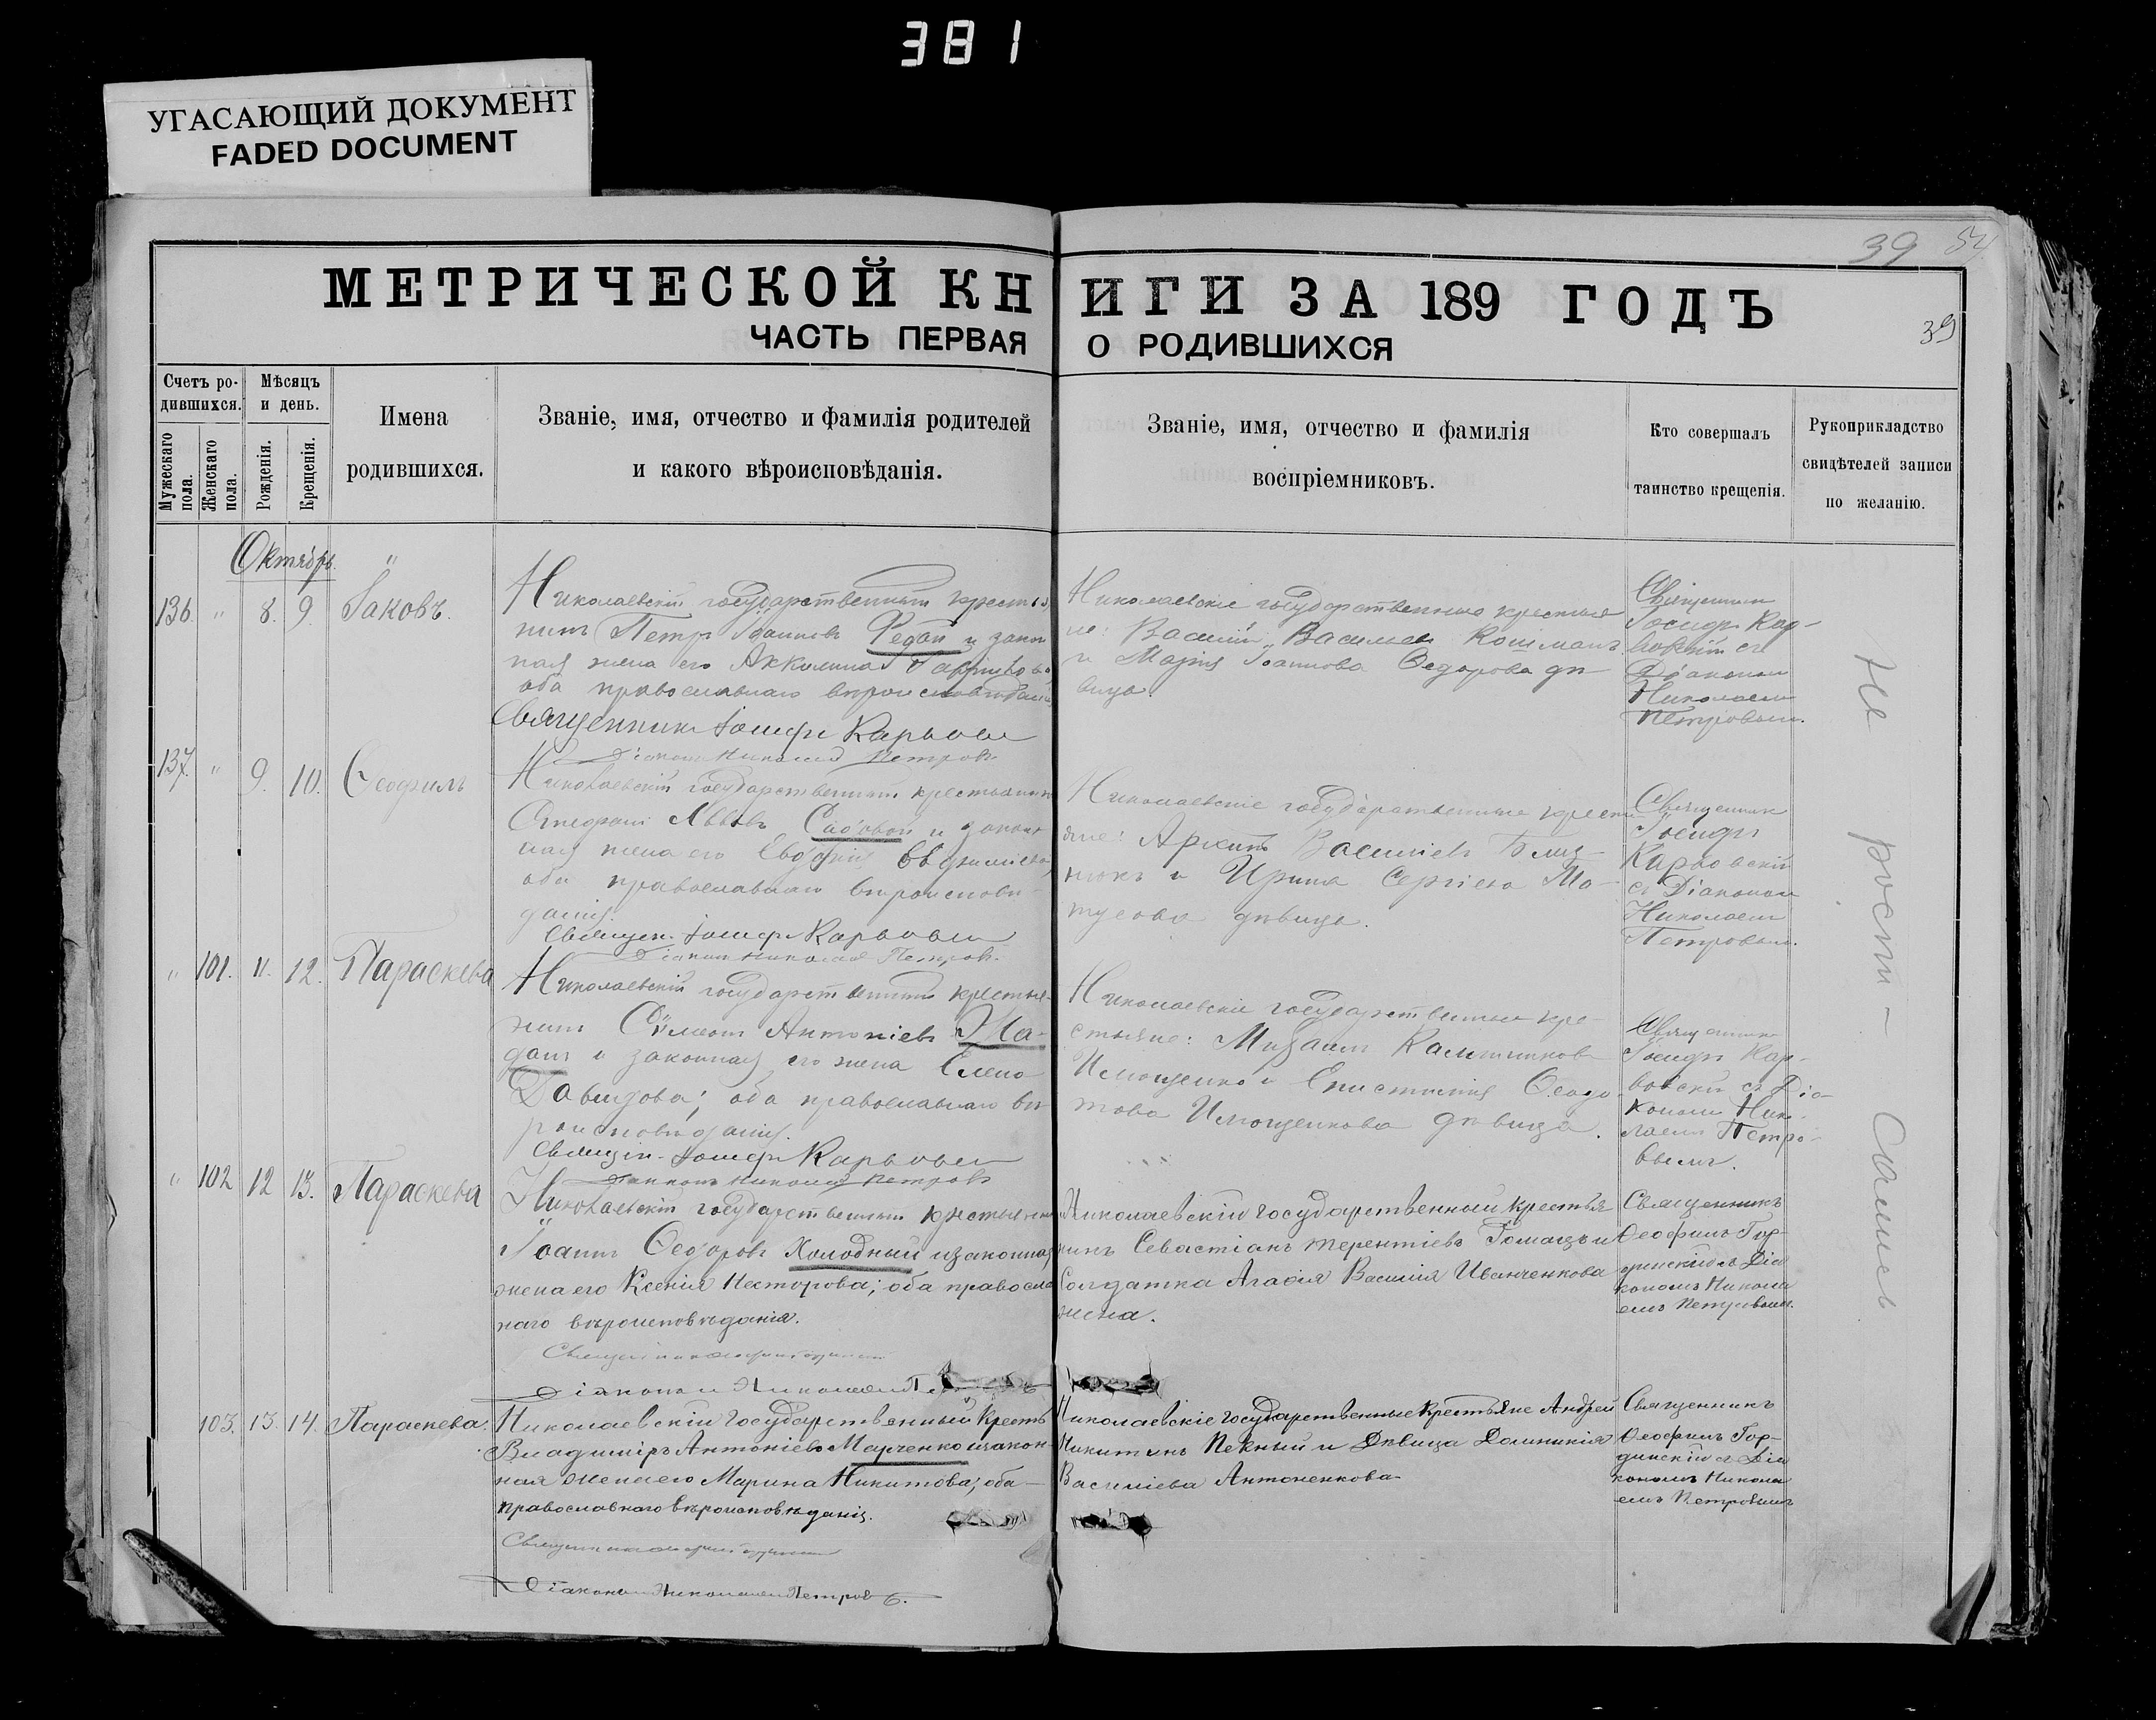 381
УГАСАЮЩИЙ ДОКУМЕНТ
FADED DOCUMENT
39 54
МЕТРИЧЕСКОЙ КНИГИ ЗА 189 ГОДЪ
ЧАСТЬ ПЕРВАЯ О РОДИВШИХСЯ
39
Счетъ ро-
дившихся.
Мѣсяцъ
и день.
Мужескаго
пола.
Женскаго
пола.
Рожденія.
Крещенія.
Имена
родившихся.
Званіе, имя, отчество и фамилія родителей
и какого вѣроисповѣданія.
Званіе, имя, отчество и фамилія
воспріемниковъ.
Кто совершалъ
таинство крещенія.
Рукоприкладство
свидѣтелей записи
по желанію.
Октябрь
136. " 8. 9. Іаковъ.
Николаевскій государственный крестья
нинъ Петръ Іоанновъ и закон
ная жена его Аккилина
оба православнаго вѣроисповѣданія
Священникъ Іосифъ
Діаконъ Николай Петровъ
Николаевскіе государственные крестья
не: Василій Васильевъ Кошманъ
и Марія Іоаннова Ѳедорова дѣ
вица.
Священникъ
Іосифъ Кар-
вовскій съ
Діакономъ
Николаемъ
Петровымъ.
137. " 9. 10. Ѳеофилъ
Николаевскій государственный крестьянинъ
Стефанъ Львовъ Садовой и закон
ная жена его Евдокія
оба православнаго вѣроисповѣ-
данія.
Священ. Іосифъ
Діаконъ Николай Петровъ.
Николаевскіе государственные крестья
яне: Архипъ Василіевъ Близ-
нюкъ и Ирина Сергіева Ма-
тусова дѣвица.
Священникъ
Іосифъ
Карвовскій
съ Діакономъ
Николаемъ
Петровымъ.
" 101. 11. 12. Параскева
Николаевскій государственный крестья-
нинъ Сѵмеонъ Антоніевъ
и законная его жена Елена
Давидова; оба православнаго вѣ-
роисповѣданія.
Священ. Іосифъ
Діаконъ Николай Петровъ
Николаевскіе государственные кре-
стьяне: Михаилъ
и Епистимія
дѣвица.
Священникъ
Іосифъ Кар-
вовскій съ Діа-
кономъ Нико-
лаемъ Петро-
вымъ.
" 102 12 13. Параскева
Николаевскій государственный крестьянинъ
Іоаннъ Ѳедоровъ Холодный и законная
жена его Ксенія Несторова; оба правосла
наго вѣроисповѣданія.
Діаконъ Николай
Николаевскій государственный крестья
нинъ Севастіанъ Терентіевъ и
Солдатка Агафія Василія Иванченкова
жена.
Священникъ
Ѳеофилъ Гор-
динскій съ Діа
кономъ Никола
емъ Петровымъ.
103. 13. 14. Параскева.
Николаевскій государственный крестья
Владиміръ Антоніевъ Марченко и закон-
ная жена его Марина Никитова; оба
православнаго вѣроисповѣданія.
Діаконъ Николай Петровъ.
Николаевскіе государственные крестьяне Андрей
Никитинъ и Дѣвица Домникія
Василіева Антоненкова
Священникъ
Ѳеофилъ Гор-
динскій съ Діа
кономъ Никола
емъ Петровымъ